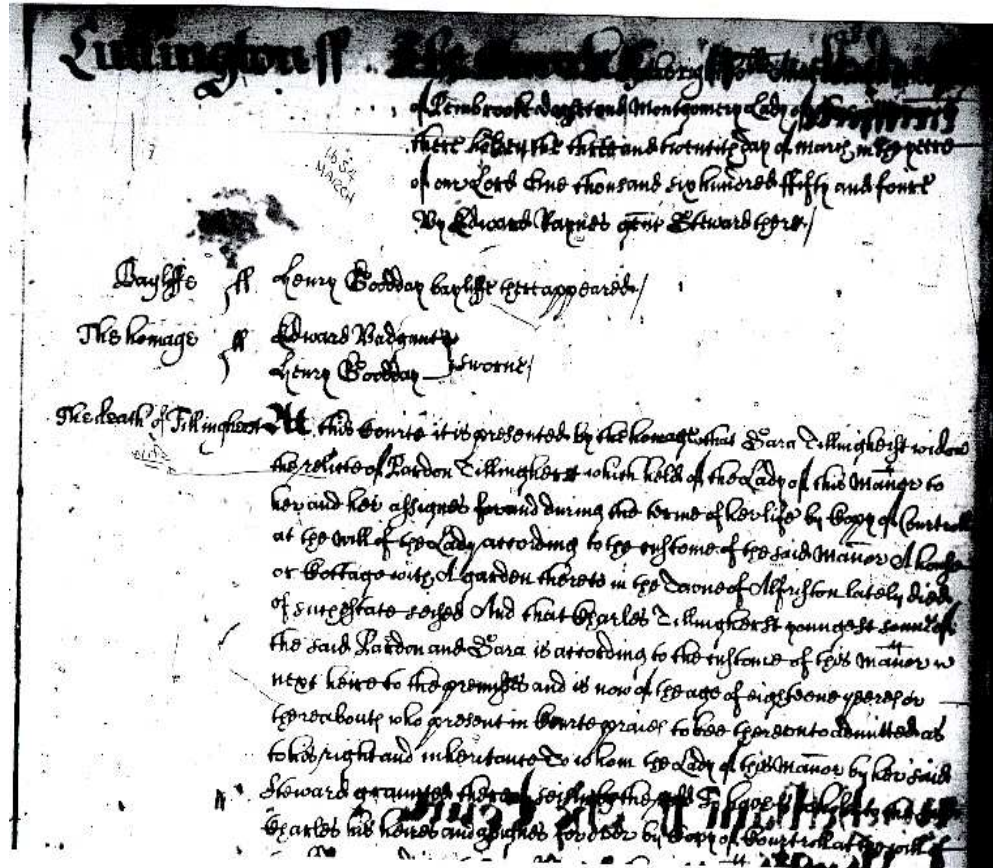 Lullington ss. The Court
of Pembrooke Dorsett and Montgomery Lady of
there holden the three and twentith day of March in the yeere
of our Lord One thousand six hundred ffifty and foure
By Edward Raynes gent Steward there /
1654
MARCH
Bayliffe ss Henry Godday bayliffe there appeared /
The homage ss Edward
Henry Godday sworne /
The death of Tillinghest At this Courte it is presented by the homage that Sara Tillinghest widow
the relicte of Pardon Tillinghest which held of the Lady of this Manor to
her and her assignes for and during the terme of her life by Copy of Court roll
at the will of the Lady according to the custome of the said Manor A house
or Cottage with A garden thereto in the Towne of Alfriston lately died
of such estate seised And that Charles Tillinghest youngest sonne of
the said Pardon and Sara is according to the custome of this Manor
next heire to the premisses and is now of the age of eighteene yeeres or
thereabouts who present in Courte praies to bee thereunto admitted as
to his right and inheritance To whom the Lady of this Manor by her said
Steward graunted thereof seisin by the rodd To have
Charles his heires and assignes forever by Copy of Court roll at the will of